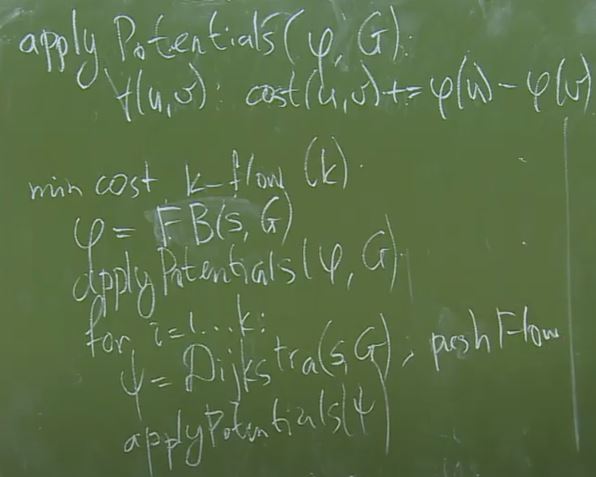 apply Potentials(φ, G):
∀(u,v): cost(u,v) += φ(u) - φ(v)
min cost k-flow (k):
φ = FB(s, G)
applyPotentials(φ, G)
for i=1...k:
ψ = Dijkstra(s, G), pushFlow
applyPotentials(ψ